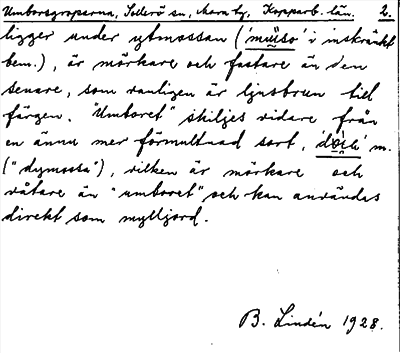 Umborsgroparna, Sollerö sn, Mora tg, Kopparb. län. 2.
ligger under ytmossan ('mu̯so' i inskränkt
bem.), är mörkare och fastare än den
senare, som vanligen är ljusbrun till
färgen. "Umboret" skiljes vidare från
en ännu mer förmultnad sort, m.
("dymossa"), vilken är mörkare och
våtare än "umboret" och kan användas
direkt som mylljord.
B. Lindén 1928.